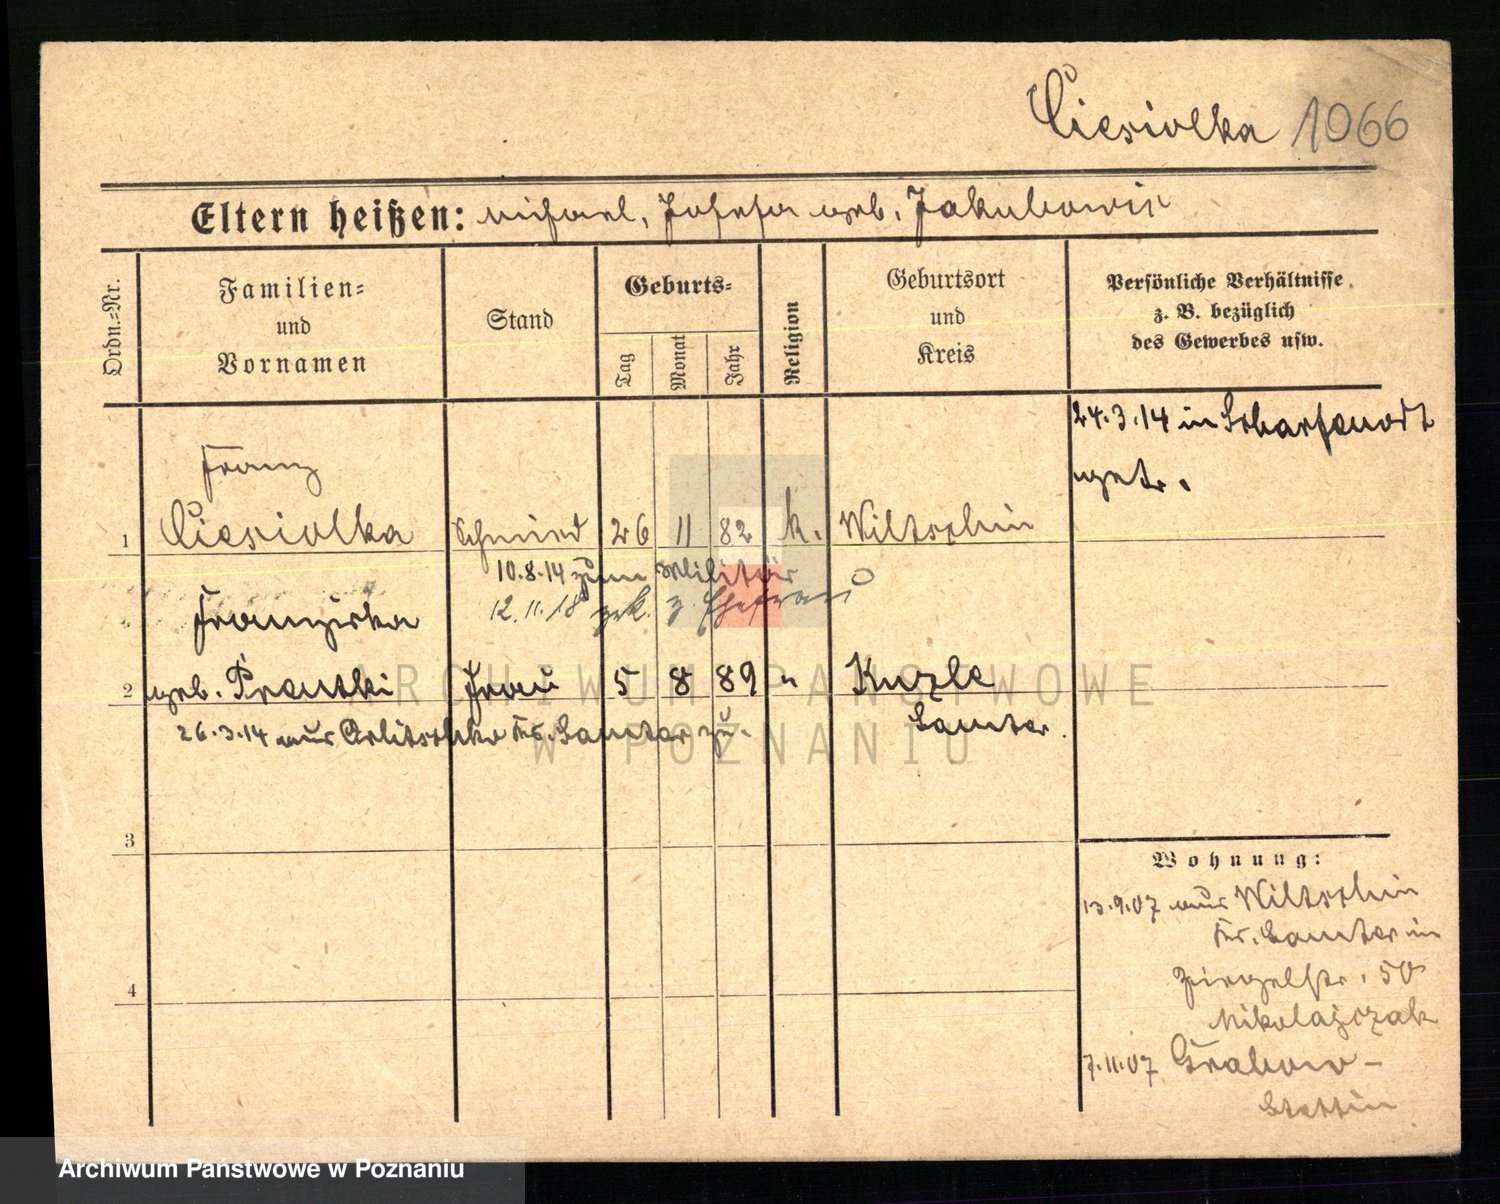 Ciesiolka 1066
Eltern heißen: Michael, Josefa geb. Jakubowic
Ordn.=Nr.
Familien=
und
Vornamen
Stand
Geburts=
Tag
Monat
Jahr
Religion
Geburtsort
und
Kreis
Persönliche Verhältnisse
z. B. bezüglich
des Gewerbes usw.
24.3.14 in Scharfenort
getr.
Franz
1 Ciesiolka Schmied 26 11 82 k. Wiltschin
10.8.14 zum Militär
12.11.18 zrk. z. Ehefrau
Franziska
2 geb. Frau 5 8 89 " Kuzle
Samter.
26.3.14 aus Kr. Samter zu.
3
4
Wohnung:
13.9.07 aus Wiltschin
Kr. Samter in
Ziegelstr. 50
Mikolajczak
7.11.07 Grabow-
Stettin
ARCHIWUM PAŃSTWOWE
W POZNANIU
Archiwum Państwowe w Poznaniu